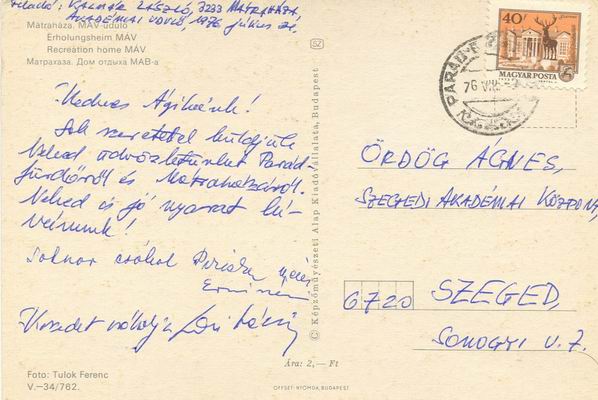 Feladó: Kalmár László, 3233 Mátraháza,
Akadémiai üdülő, 1976 július 31.
Mátraháza. MÁV-üdülő
Erholungsheim MÁV
Recreation home MÁV
Матрахаза. Дом отдыха МАВ-а
Kedves Ágikánk!
Sok szeretettel küldjük
Neked üdvözletünket Parád-
fürdőről és Mátraházáról.
Neked is jó nyarat kí-
vánunk!
Sokszor csókol Piriska néni
Kezedet csókolja Laci bácsi
Foto: Tulok Ferenc
V.—34/762.
SZ
© Képzőművészeti Alap Kiadóvállalata, Budapest
Ára: 2,— Ft
OFFSET-NYOMDA, BUDAPEST
40
MAGYAR POSTA
76 VIII
ÖRDÖG ÁGNES,
SZEGEDI AKADÉMIAI KÖZPONT,
6720 SZEGED,
SOMOGYI U. 7.